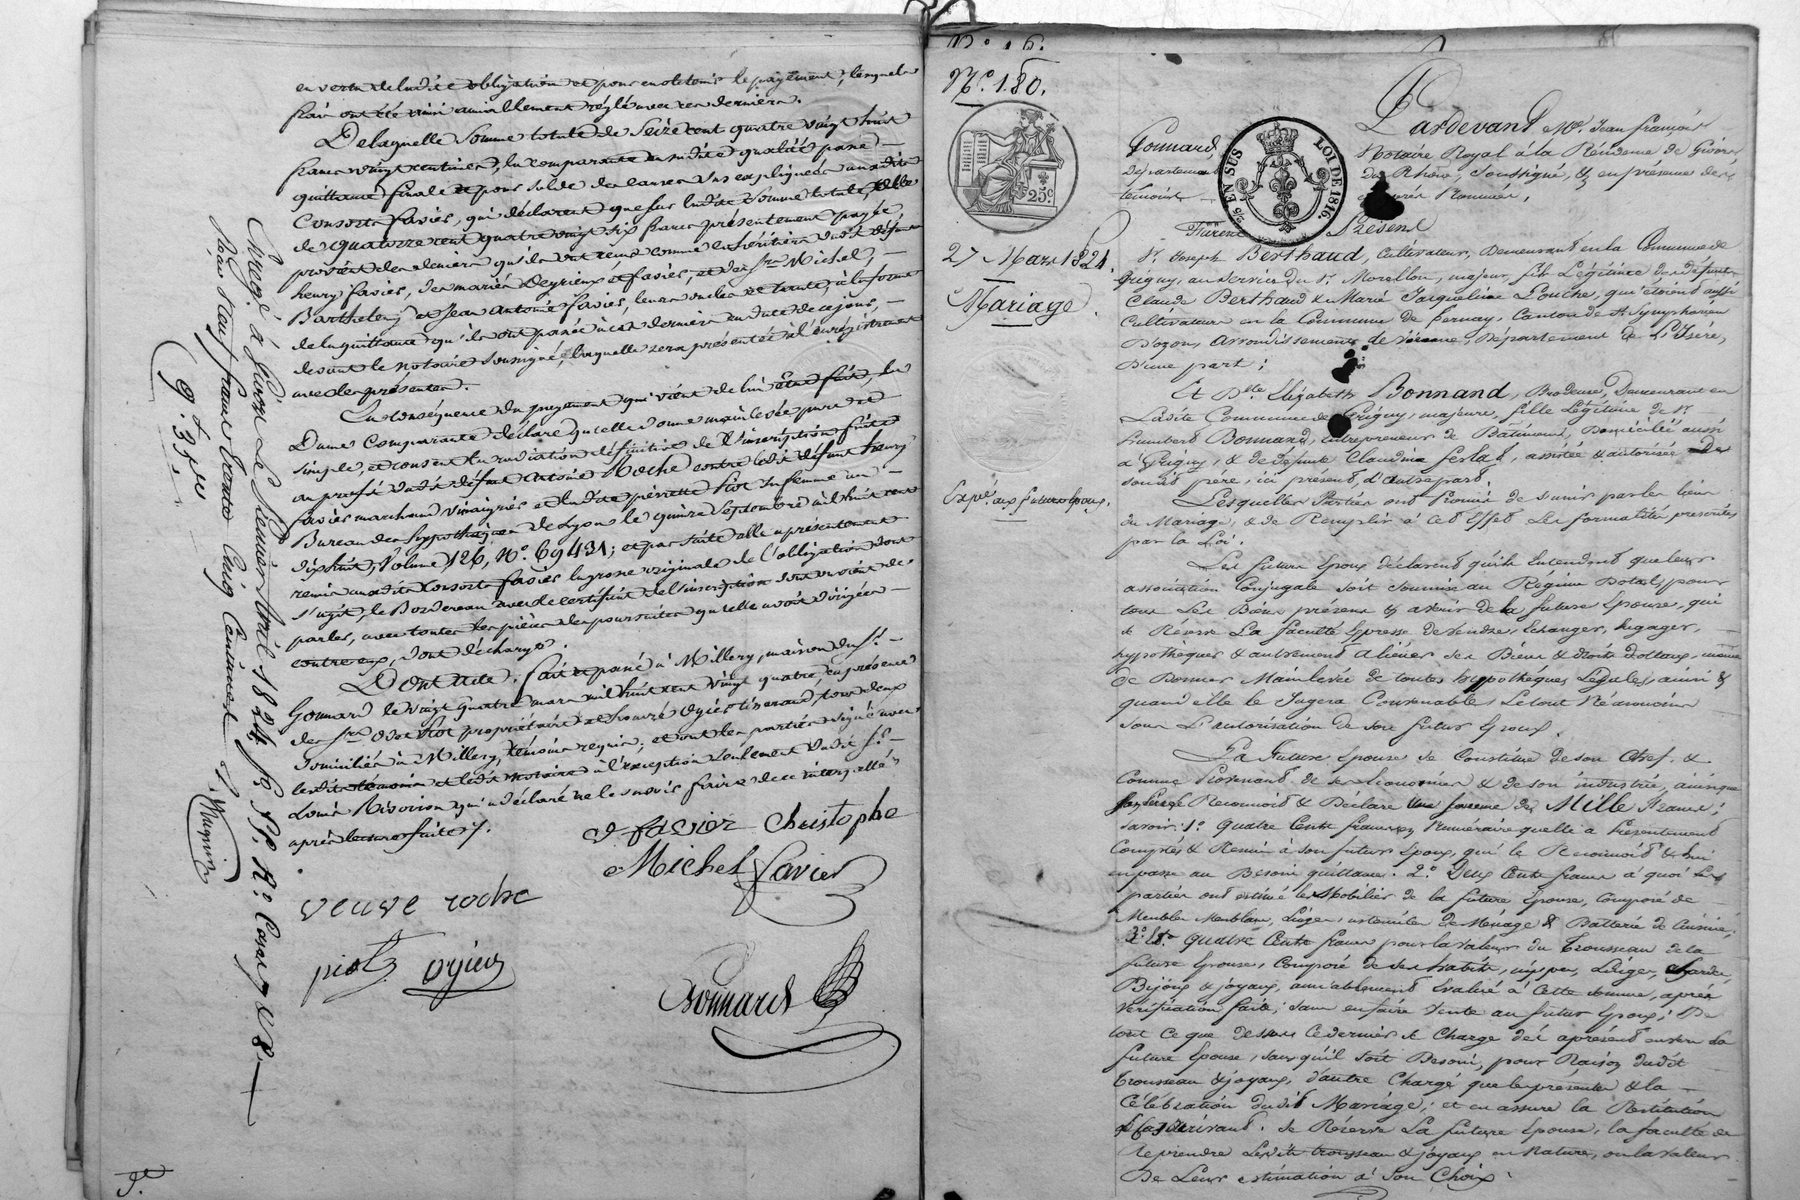 en vertu de ladite obligation et pour en obtenir le payement, lesquels
frais ont été ainsi amiablement réglés avec ces derniers.
De laquelle somme totale de Seize cent quatre vingt huit
francs vingt centimes, la comparante en sadite qualité passe
quittance finale et pour solde des causes sus expliquées auxdits
Consorts favier, qui déclarent que sur ladite somme totale, celle
de quatorze cent quatre vingt six francs présentement payée
provient des deniers qu'ils ont reçus comme héritiers dudit défunt
henry favier, des mariés Deyrieux et favier, et des Srs Michel,
Barthelemy et Jean Antoine favier, leurs oncles et tante, à la forme
de la quittance qu'ils ont passée à ces derniers en date de ce jour,
devant le notaire soussigné, laquelle sera présentée à l'enregistrement
avec les présentes.
En conséquence du payement qui vient de lui être fait, la
Dame Comparante déclare qu'elle donne main levée pure et
simple, et consent la radiation définitive de l'inscription faite
au profit dudit défunt Antoine Roche, contre ledit défunt henry
favier marchand vinaigrier et ladite pierrette Piot sa femme au
Bureau des hypothèques de Lyon le quinze septembre mil huit cent
dix huit, Volume 126, No. 69431; et par suite elle a présentement
remis auxdits Consorts favier la grosse originale de l'obligation dont
s'agit, le Bordereau avec le certificat de l'inscription dont on vient de
parler, avec toutes les pièces des poursuites qu'elle avoit dirigées
contre eux, dont décharge.
Dont acte. fait et passé à Millery, maison du Sr.
Gonnard le vingt quatre mars mil huit cent vingt quatre, en présence
des Srs. Piot propriétaire et honoré Ogier tisserand tous deux
domiciliés à Millery, témoins requis; et ont les parties signé avec
lesdits témoins et ledit notaire à l'exception seulement dudit Sr.
Louis Rivoiron qui a déclaré ne le savoir faire de ce interpellé
après lecture faite /.
favier Christophe
Michel favier
veuve roche
piot ogier
Gonnard
Enregé à Givors Le premier Avril 1824 fo. Ro. Cases 7 & 8.
Reçu Neuf francs trente Cinq Centimes
9f. 35c
No. 16.
No. 180.
25c
27 Mars 1824.
Mariage.
Expé. aux futurs Epoux.
EN SUS
LOI DE 1816.
Pardevant Me. Jean François
Gonnard, Notaire Royal à la Résidence de Givors
Département du Rhône, Soussigné, & en présence des
témoins après Nommés,
Furent Présent
Sr. Joseph Berthaud, Cultivateur, Demeurant en la Commune de
Grigny, au service du Sr. Morellon, majeur, fils Légitime des défunts
Claude Berthaud & Marie Jacqueline Pouche, qui étoient aussi
Cultivateurs en la Commune de Sernay, Canton de St Symphorien
D'ozon, Arrondissement de Vienne, Département de L'Isère,
D'une part;
Et Dlle Elizabeth Bonnand, Brodeuse, Demeurant en
Ladite Commune de Grigny, majeure, fille Légitime de Sr.
humbert Bonnand, Entrepreneur de Bâtiment, Domicilié aussi
à Grigny, & de défunte Claudine fertat, assistée & autorisée De
sondit père, ici présent, d'autre part.
Lesquelles Parties ont Promis de s'unir par les liens
du Mariage, & de Remplir à cet Effet Les formalités prescrites
par la Loi.
Les futurs Epoux déclarent qu'ils Entendent que leur
association Conjugale soit soumise au Régime Dotal, pour
tous Les Biens présens & avenir de la future Epouse, qui
se Réserve La faculté Expresse de vendre, Echanger, Engager,
hypothéquer & autrement aliéner ses Biens & droits dotaux, même
de Donner Mainlevée de toutes hypothèques Légales, ainsi &
quand elle le Jugera Convenable; Le tout Néanmoins
sous L'autorisation de son futur Epoux.
La Future Epouse se Constitue de son Chef &
Comme Provenant de ses Economies & de son industrie, ainsi que
Reconnoît & Déclare une somme de Mille francs;
savoir: 1o. quatre Cents francs en Numéraire quelle a Présentement
Comptés & Remis à son futur Epoux, qui le Reconnoît & lui
en passe au Besoin quittance. 2o. Deux Cents francs à quoi Les
parties ont estimé le Mobilier de la future Epouse, Composé de
Meubles Meublans, Linges, ustensiles de Ménage & Batterie de Cuisine;
3o. Et quatre Cents francs pour la valeur du Trousseau de la
future Epouse, Composé de ses habits, nippes, Linges,
Bijoux & joyaux, amiablement Evalué à Cette somme, après
Vérification faite, sans en faire Vente au futur Epoux; De
tout ce que dessus Ce dernier se Charge dès aprésent envers La
future Epouse, sans qu'il soit Besoin, pour Raison dudit
trousseau & joyaux, d'autre Charge que les présentes & la
Célébration dudit Mariage; et en assure la Restitution
Se Réserve La future Epouse, la faculté de
reprendre Lesdits trousseau & joyaux en Nature, ou la valeur
De Leur estimation à Son Choix.